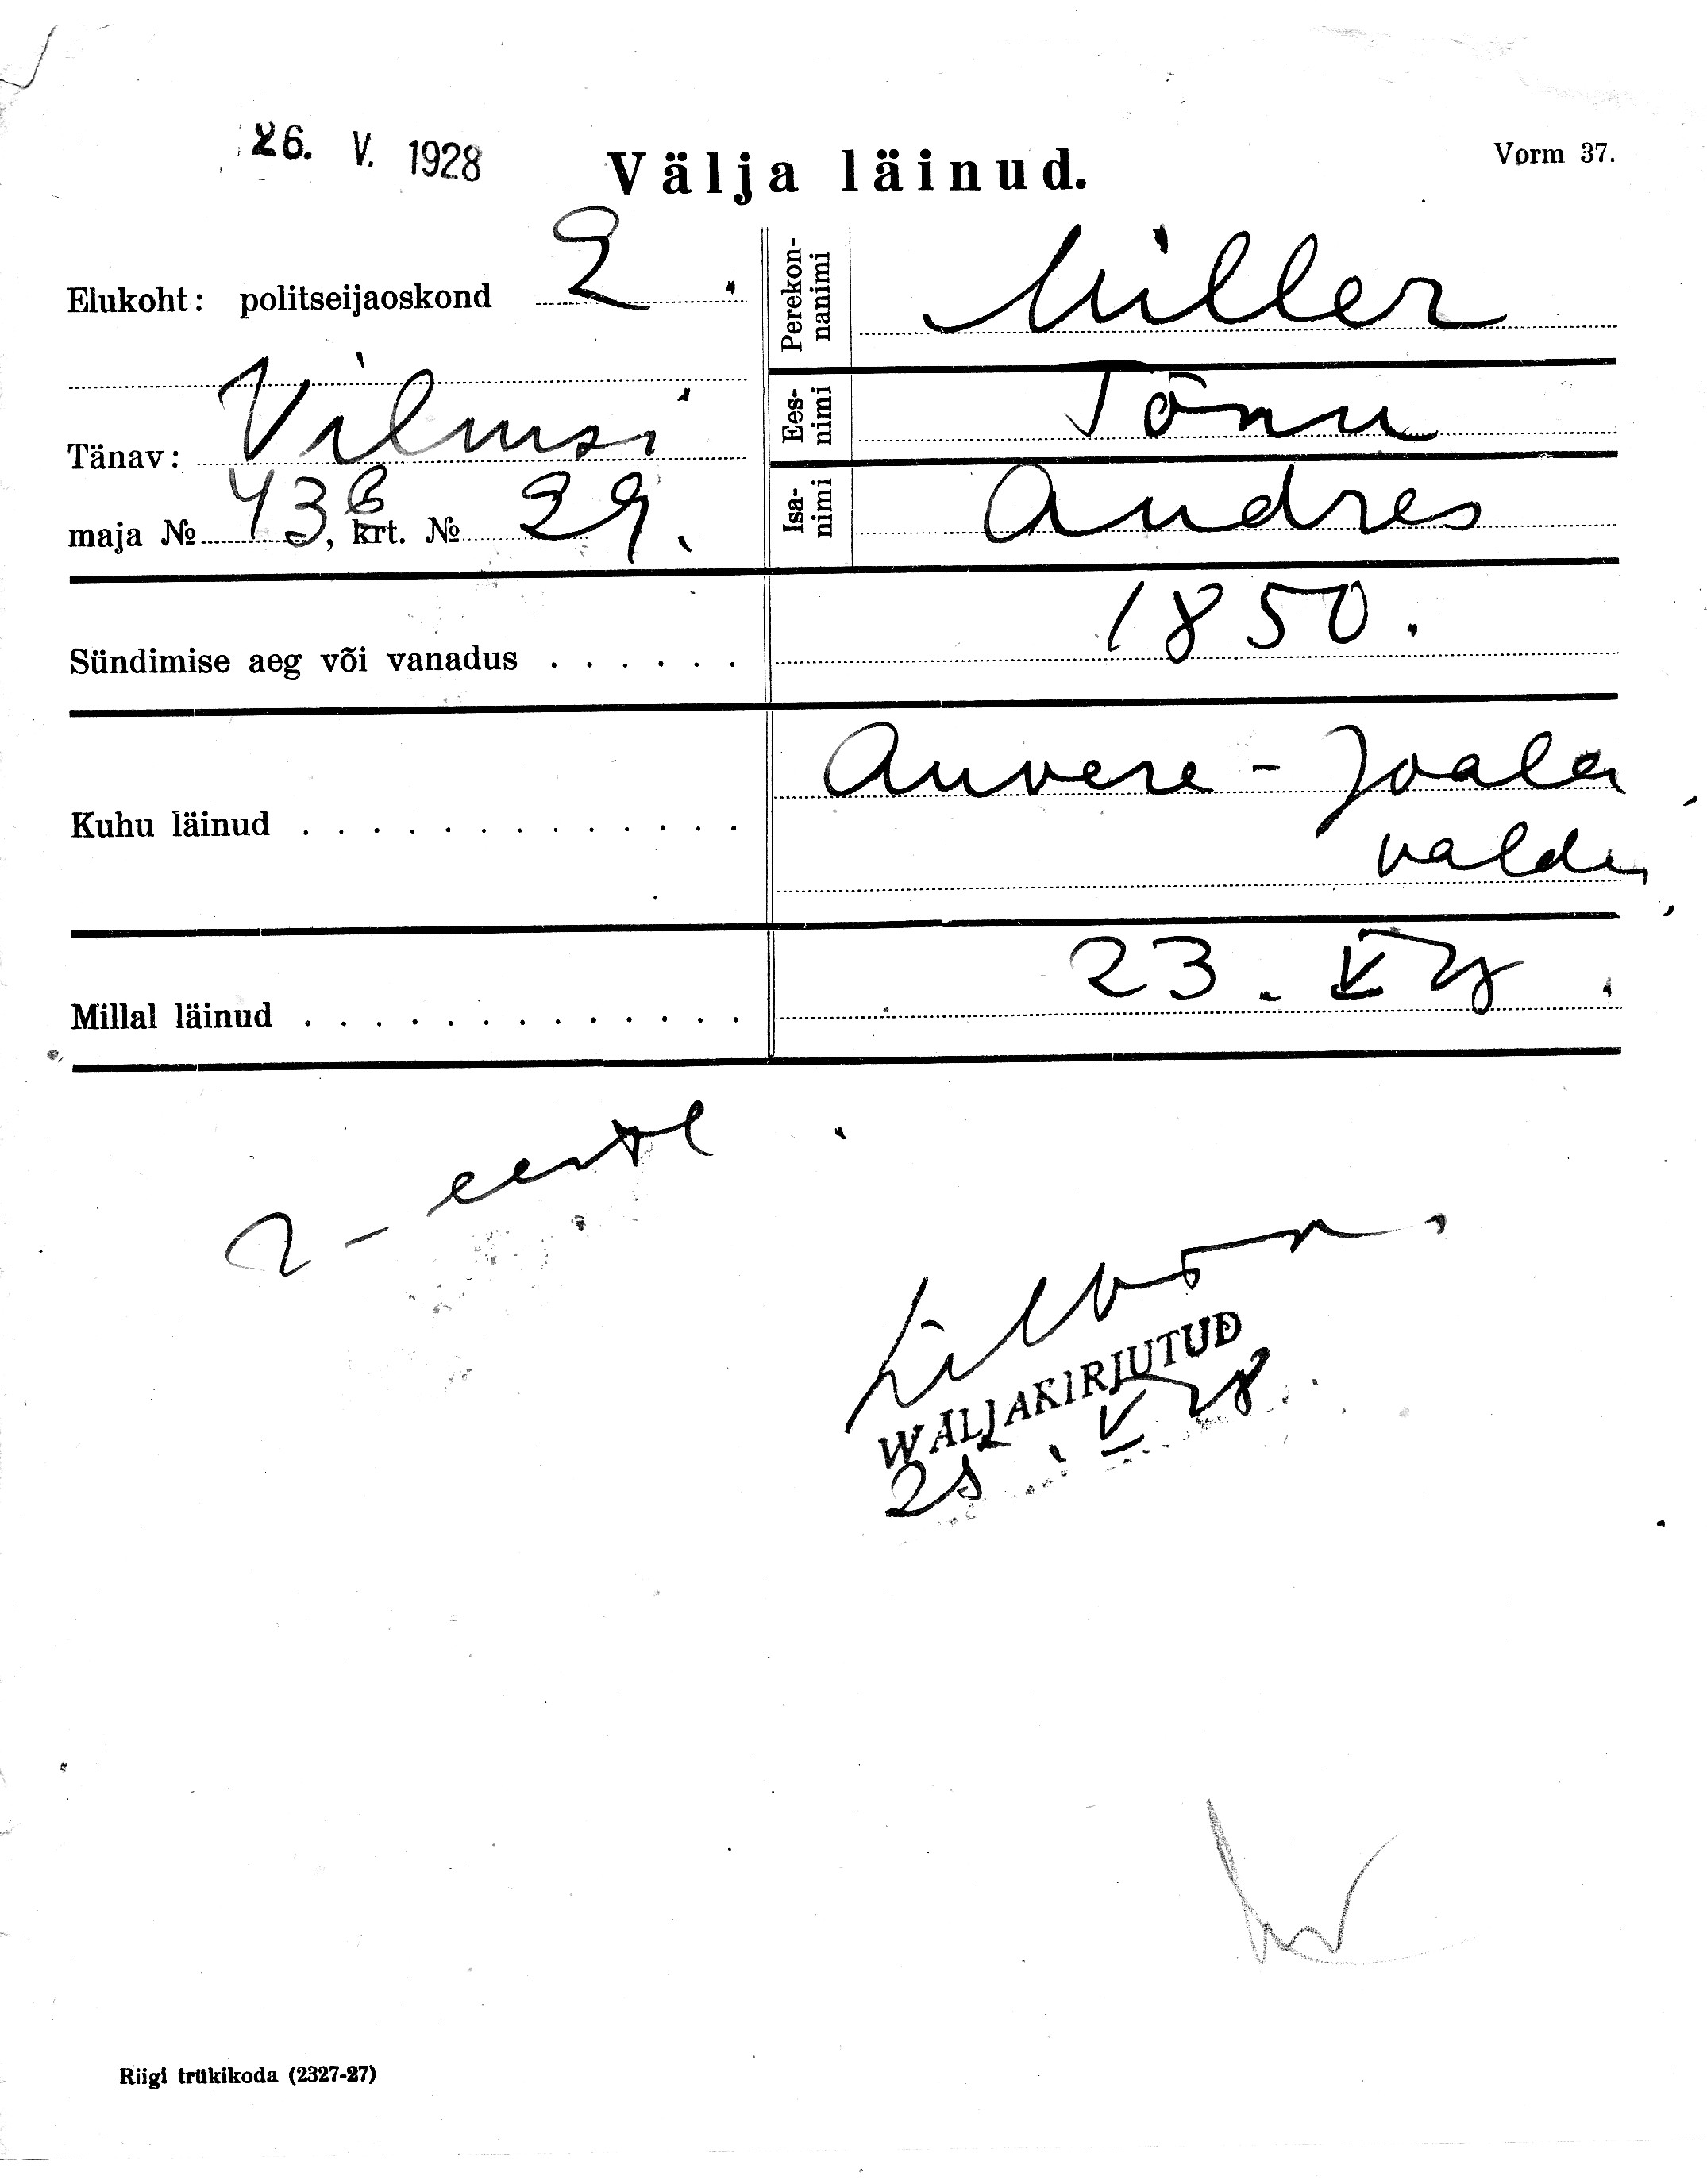 26. V. 1928
Välja läinud.
Vorm 37.
Elukoht: politseijaoskond 2.
Tänav: Vilmsi
maja № 43 B, krt. № 29.
Perekonnanimi Miller
Eesnimi Tõnu
Isanimi Andres
Sündimise aeg või vanadus . . . . . . 1850.
Kuhu läinud . . . . . . . . . . . . . Auvere-Joala
valda,
Millal läinud . . . . . . . . . . . . . 23. V
WÄLJAKIRJUTUD
25. V 28
Riigi trükikoda (2327-27)